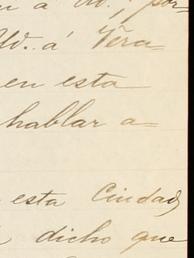 en a Ud., por-
Ud. á Vera-
en esta
hablar a-
esta Ciudad,
dicho que